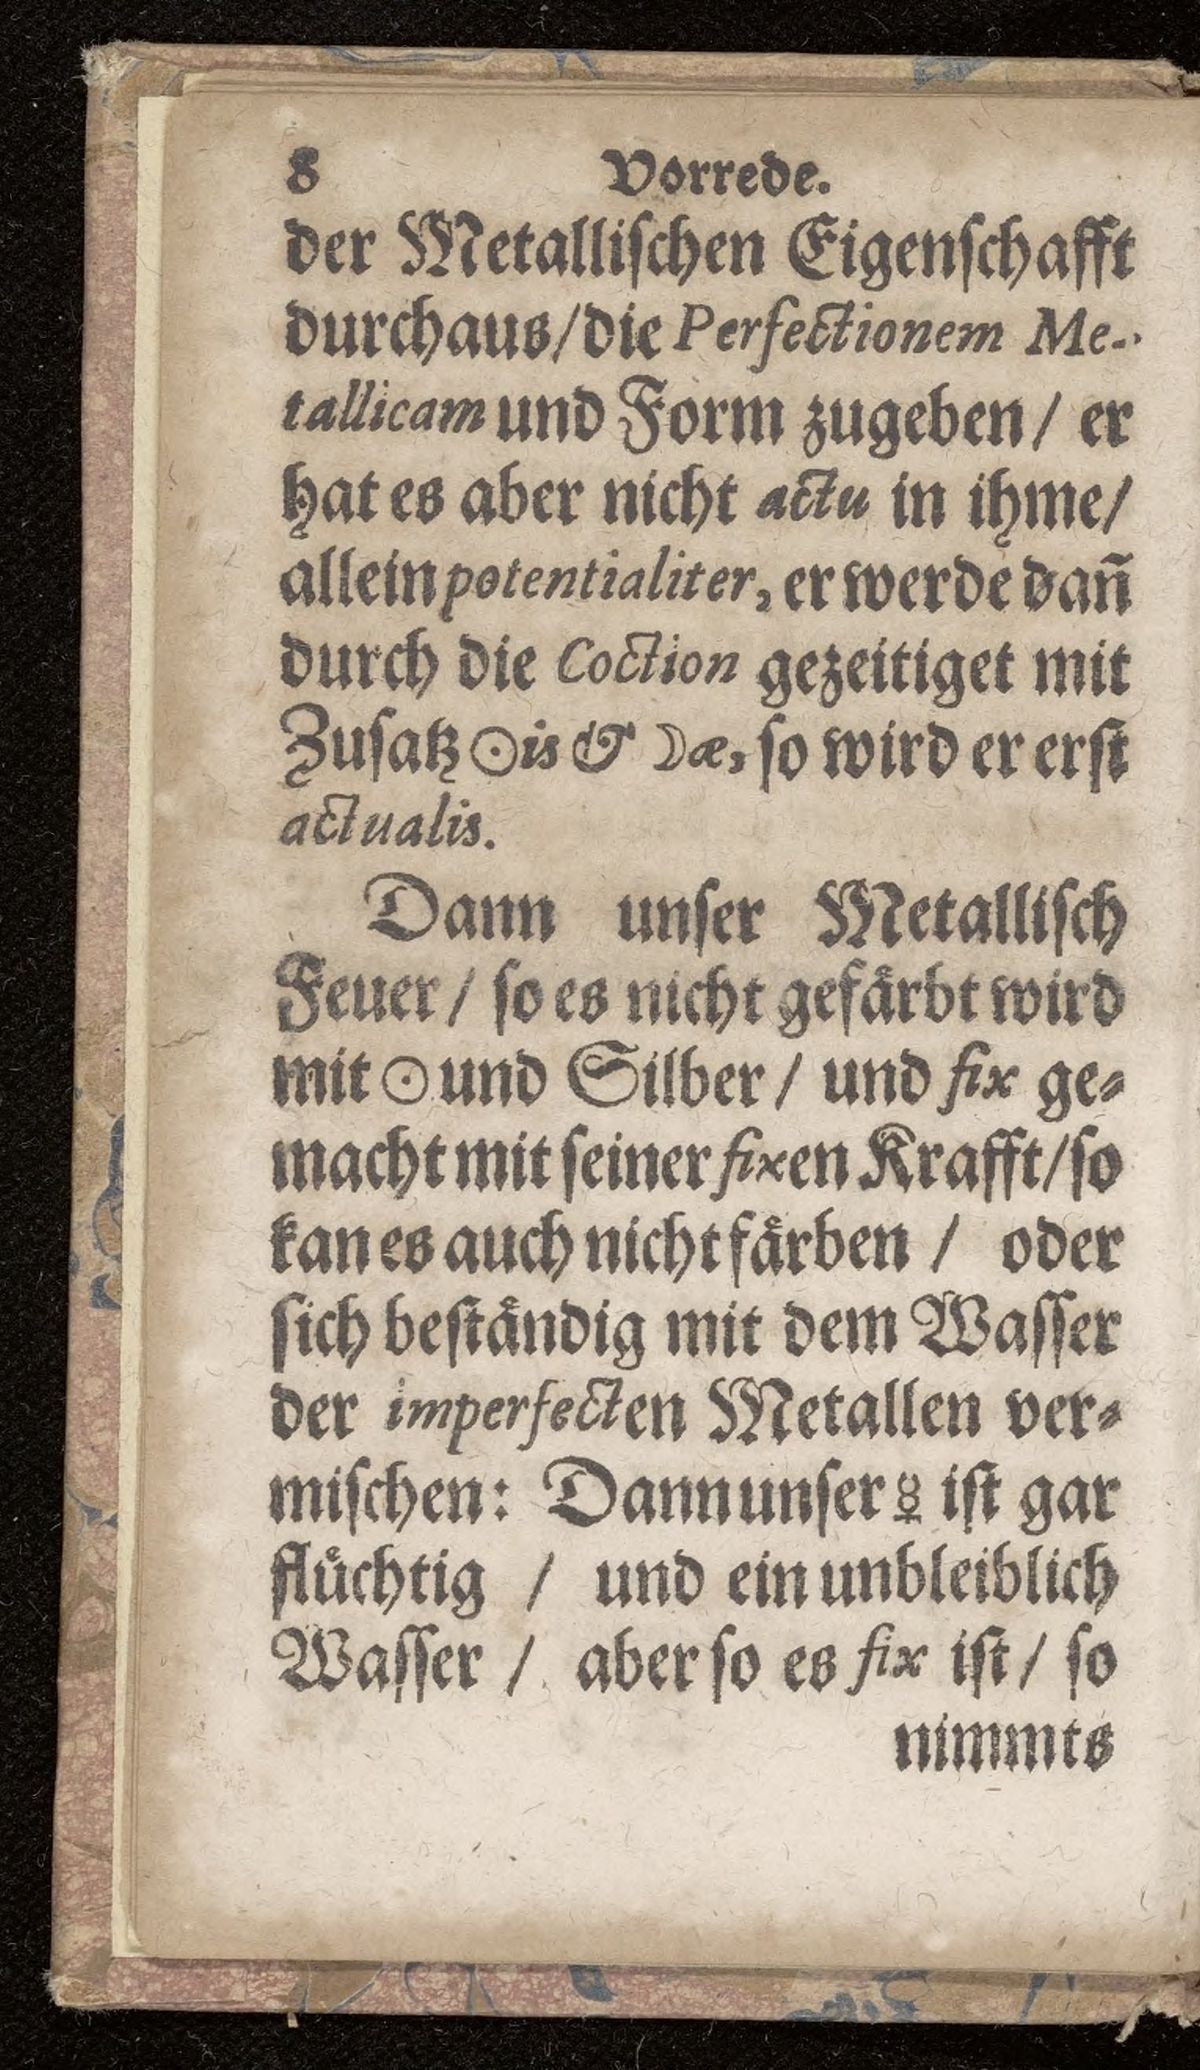 8 Vorrede.
der Metalliſchen Eigenſchafft
durchaus/die Perfectionem Me-
tallicam und Form zugeben/ er
hat es aber nicht actu in ihme/
allein potentialiter, er werde dañ
durch die Coction gezeitiget mit
Zuſatz ☉is & ☽æ, ſo wird er erſt
actualis.
Dann unſer Metalliſch
Feuer / ſo es nicht gefaͤrbt wird
mit ☉ und Silber / und fix ge-
macht mit ſeiner fixen Krafft/ſo
kan es auch nicht faͤrben / oder
ſich beſtaͤndig mit dem Waſſer
der imperfecten Metallen ver-
miſchen: Dann unſer ☿ iſt gar
fluͤchtig / und ein unbleiblich
Waſſer / aber ſo es fix iſt / ſo
nimmts